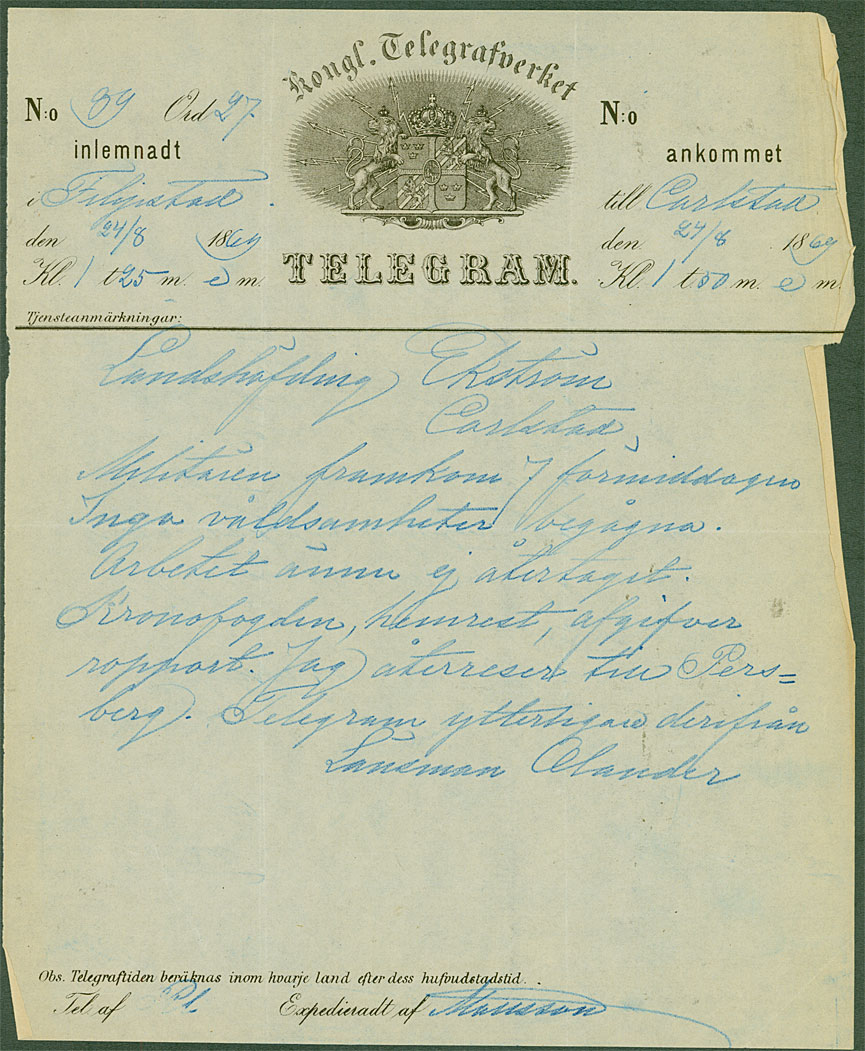 Kongl. Telegrafverket
N:o 39 Ord 27.
inlemnadt
i Filipstad.
den 24/8 1869
Kl. 1 t. 25 m. e m.
N:o
ankommet
till Carlstad
den 24/8 1869
Kl. 1 t. 50 m. e m.
TELEGRAM.
Tjensteanmärkningar:
Landshöfding Ekström
Carlstad,
Militären framkom i förmiddags
Inga våldsamheter begågna.
Arbetet ännu ej återtaget.
Kronofogden, hemrest, afgifver
rapport. Jag återreser till Pers=
berg. Telegram ytterligare derifrån
Länsman Olander
Obs. Telegraftiden beräknas inom hvarje land efter dess hufvudstadstid.
Tel af
Expedieradt af Månsson